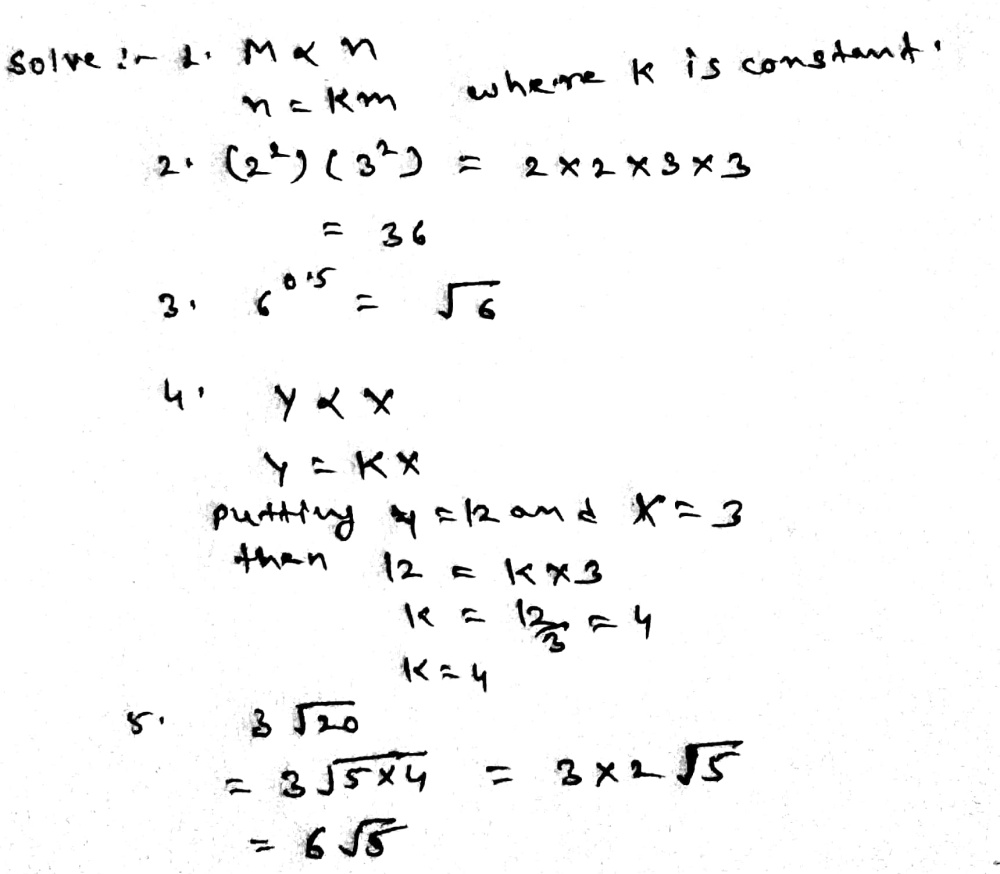 Solve :- 1. M ∝ n
n = Km where K is constant.
2. (2²) (3²) = 2 × 2 × 3 × 3
= 36
3. 6^0.5 = √6
4. Y ∝ X
Y = KX
putting y = 12 and X = 3
then 12 = K × 3
K = 12/3 = 4
K = 4
5. 3 √20
= 3 √5×4 = 3 × 2 √5
= 6 √5